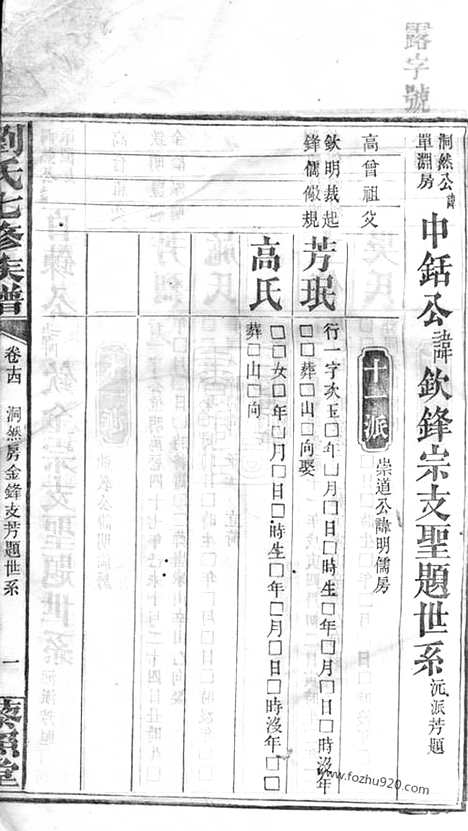 露字號
洞然公諱
單淵房
中銛公諱欽鋒宗支聖題世系
沅派芳題
十一派
崇道公諱明儒房
高曾祖父
欽明裁起
鋒儒儆規
芳珉
行一字次玉□年□月□日□時生□年□月□日□時沒年
□□葬□山□向娶
高氏
□□女□年□月□日□時生□年□月□日□時沒年□□
葬□山□向
劉氏七修族譜
卷十四
洞然房金鋒支芳題世系
一
藜照堂
www.fozhu920.com